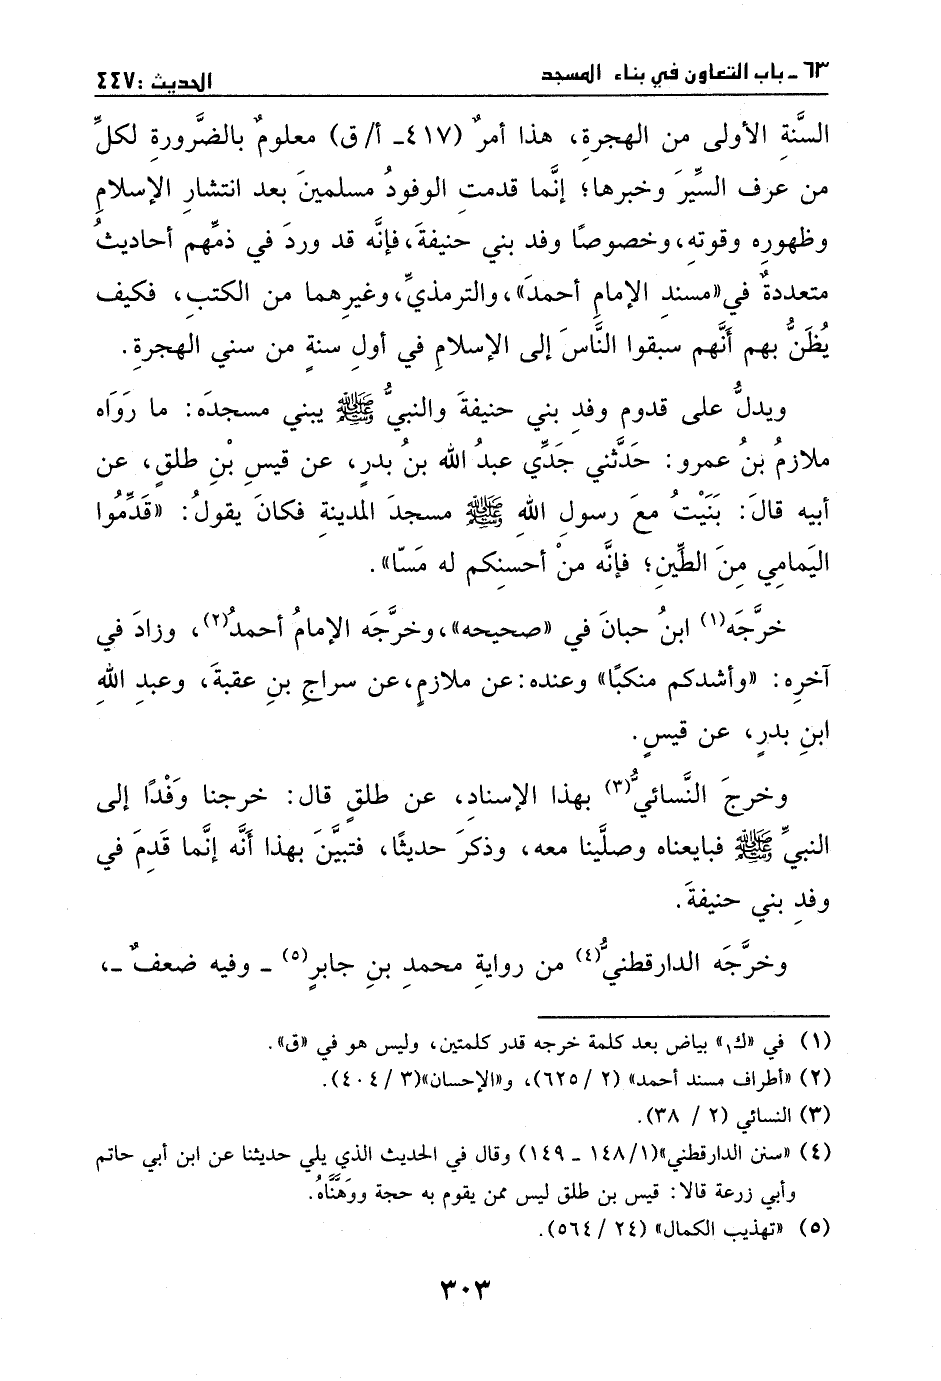 ٦٣ ـ باب التعاون في بناء المسجد
الحديث : ٤٤٧
السَّنَةِ الأولى من الهجرةِ، هذا أمرٌ (٤١٧ـ أ/ ق) معلومٌ بالضَّرورةِ لكلِّ
من عرف السِّيَرَ وخبرها؛ إنَّما قدمتِ الوفودُ مسلمينَ بعد انتشارِ الإسلامِ
وظهورِه وقوتهِ، وخصوصًا وفد بني حنيفةَ، فإنَّه قد وردَ في ذمِّهم أحاديثُ
متعددةٌ في «مسندِ الإمامِ أحمدَ»، والترمذيِّ، وغيرهما من الكتبِ، فكيف
يُظَنُّ بهم أَنَّهم سبقوا النَّاسَ إلى الإسلامِ في أولِ سنةٍ من سني الهجرةِ.
ويدلُّ على قدوم وفدِ بني حنيفةَ والنبيُّ ﷺ يبني مسجدَه: ما رَوَاه
ملازمُ بنُ عمرو: حَدَّثني جَدِّي عبدُ الله بنُ بدرٍ، عن قيسِ بْنِ طلقٍ، عن
أبيه قالَ: بَنَيْتُ معَ رسولِ اللهِ ﷺ مسجدَ المدينةِ فكانَ يقولُ: «قَدِّمُوا
اليَمامِي مِنَ الطِّينِ؛ فإنَّه منْ أحسنِكم له مَسّا».
خرَّجَه(١) ابنُ حبانَ في «صحيحه»، وخرَّجَه الإمامُ أحمدُ(٢)، وزادَ في
آخرِه: «وأشدكم منكبًا» وعنده: عن ملازمٍ، عن سراجِ بنِ عقبةَ، وعبدِ اللهِ
ابنِ بدرٍ، عن قيسٍ.
وخرجَ النَّسائيُّ(٣) بهذا الإسنادِ، عن طلقٍ قال: خرجنا وَفْدًا إلى
النبيِّ ﷺ فبايعناه وصلَّينا معه، وذكرَ حديثًا، فتبيَّنَ بهذا أَنَّه إنَّما قَدِمَ في
وفدِ بني حنيفةَ.
وخرَّجَه الدارقطنيُّ(٤) من روايةِ محمدِ بنِ جابرٍ(٥) ـ وفيه ضعفٌ ـ،
(١) في «ك١» بياض بعد كلمة خرجه قدر كلمتين، وليس هو في «ق».
(٢) «أطراف مسند أحمد» (٢ / ٦٢٥)، و«الإحسان»(٣ / ٤٠٤).
(٣) النسائي (٢ / ٣٨).
(٤) «سنن الدارقطني»(١/ ١٤٨ ـ ١٤٩) وقال في الحديث الذي يلي حديثنا عن ابن أبي حاتم
وأبي زرعة قالا: قيس بن طلق ليس ممن يقوم به حجة ووَهَّنَاهُ.
(٥) «تهذيب الكمال» (٢٤ / ٥٦٤).
٣٠٣